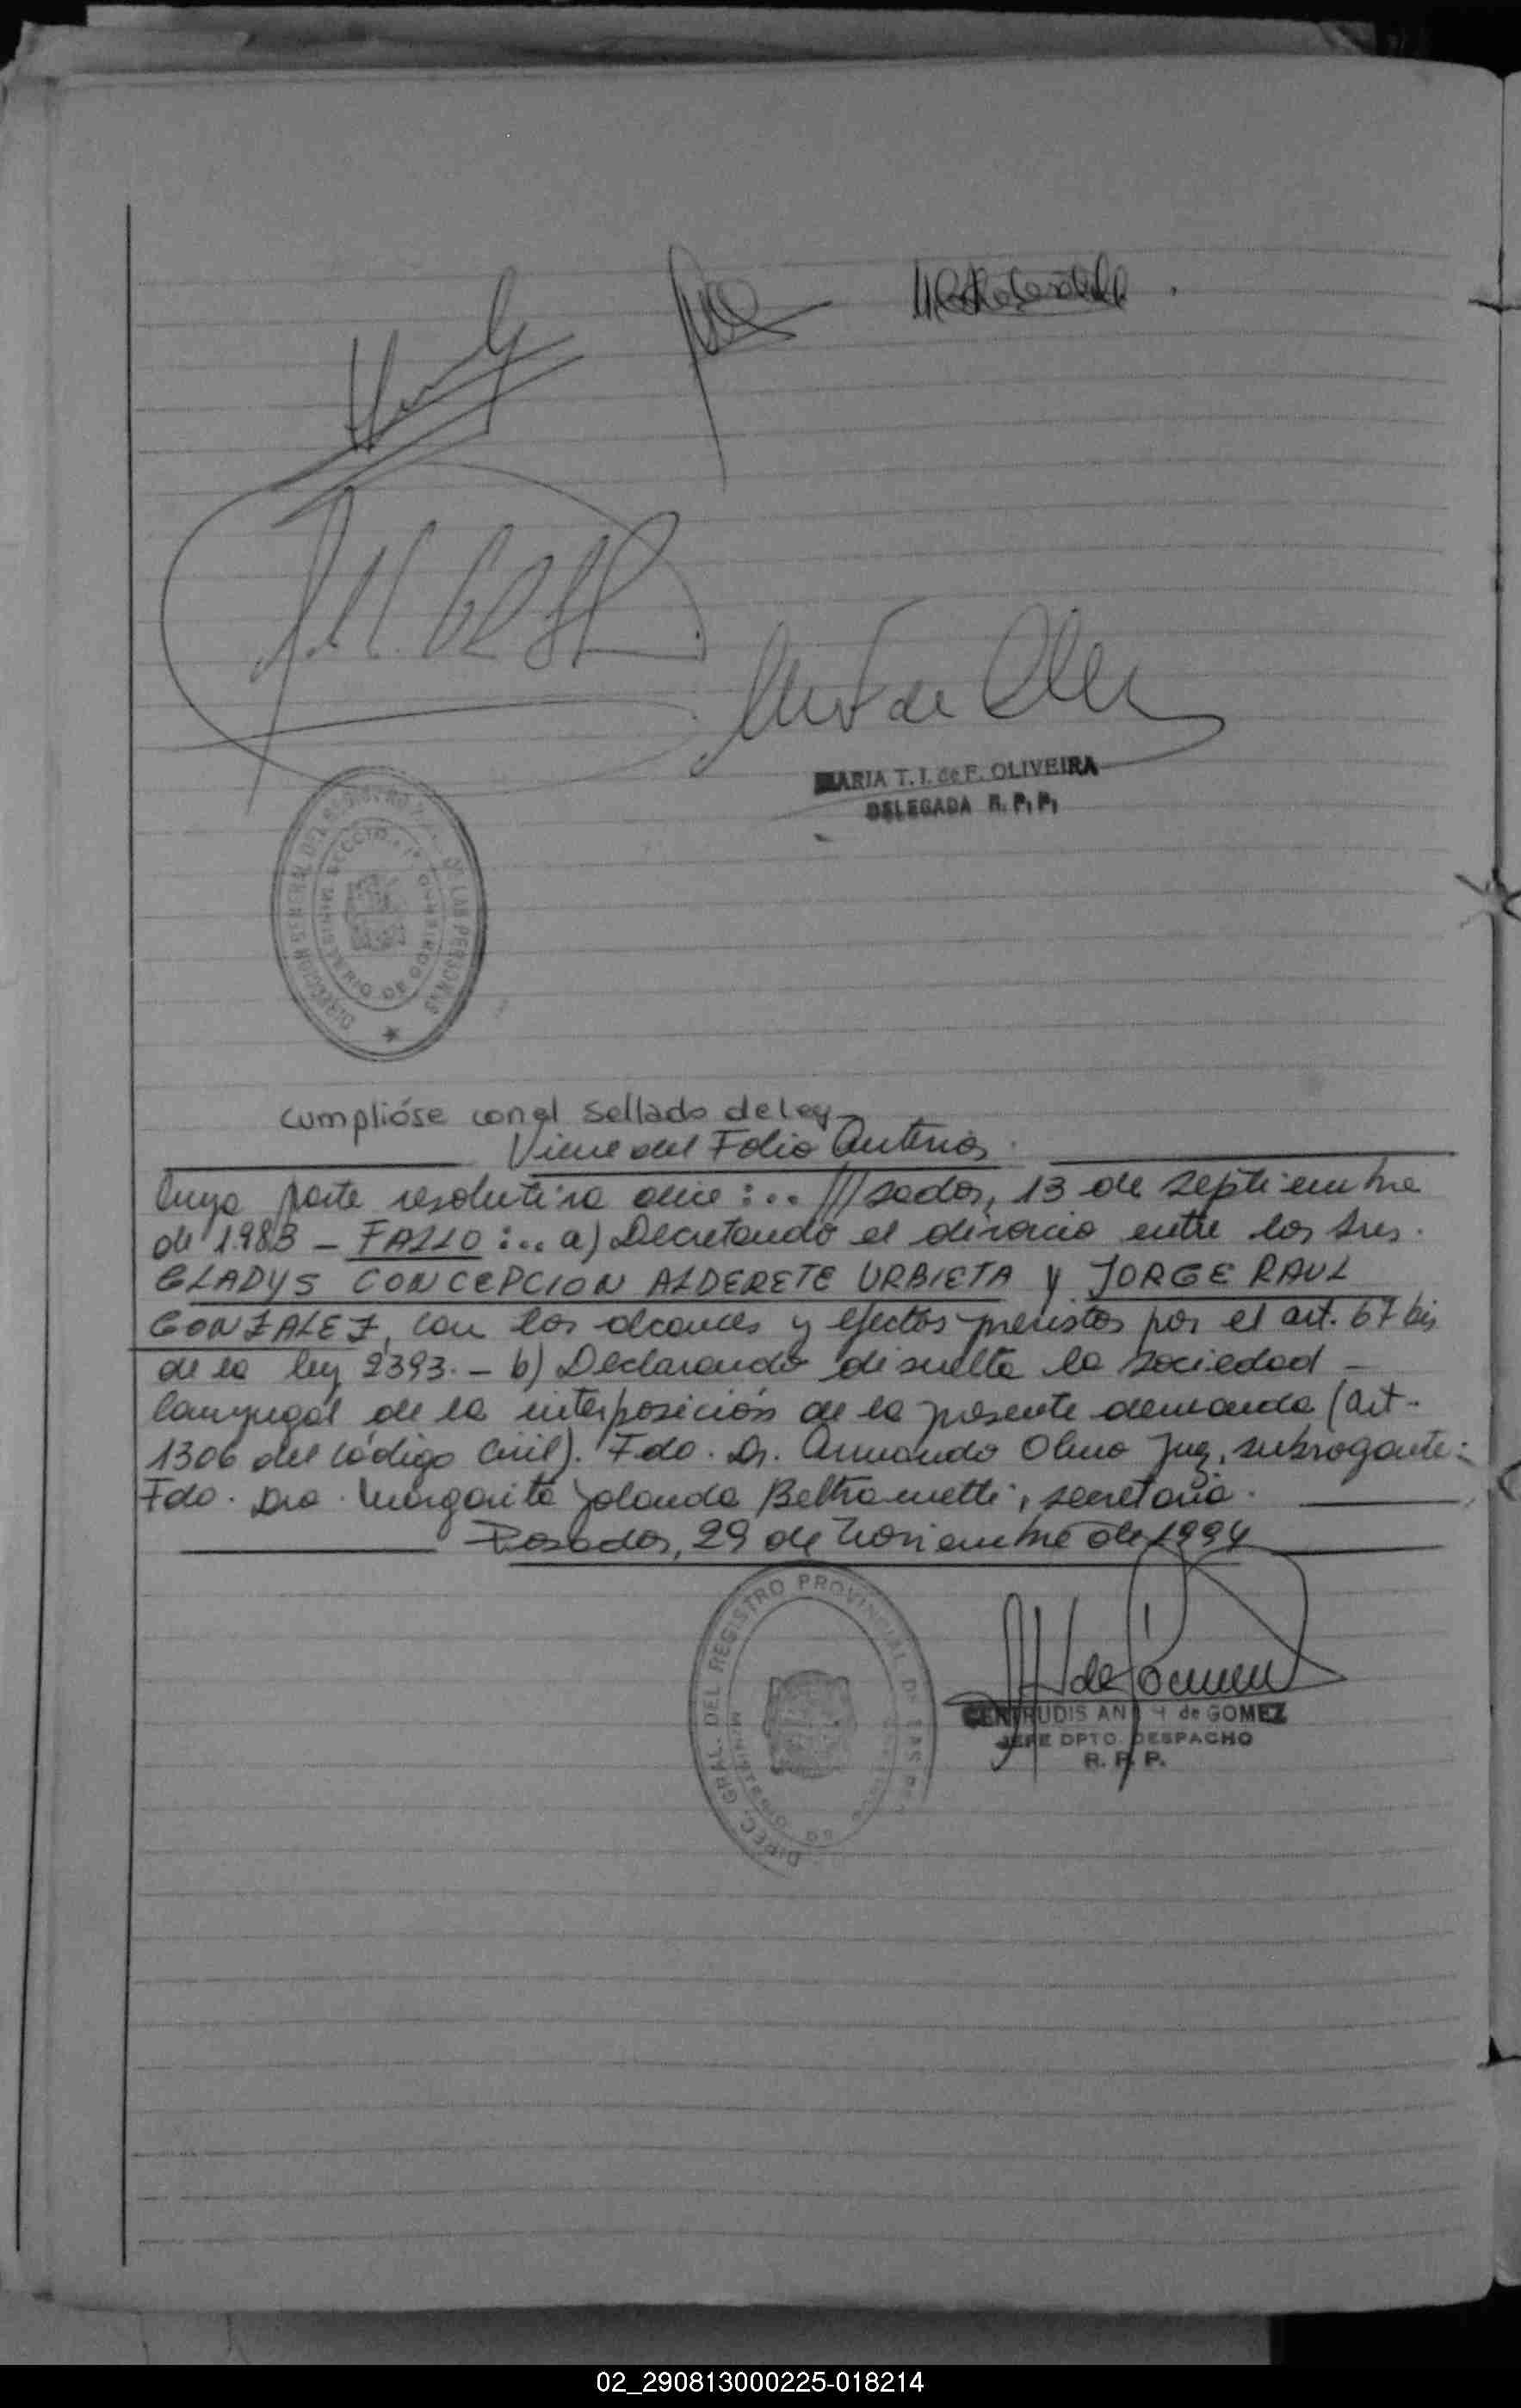 MARIA T. I. de F. OLIVEIRA
DELEGADA R. P. P.
DIRECCION GENERAL DEL REGISTRO DE LAS PERSONAS
MINISTERIO DE GOBIERNO
cumplióse con el sellado de ley
Viene del Folio Anterior
Cuya parte resolutiva dice :.. ///sadas, 13 de septiembre
de 1.983 - FALLO :... a) Decretando el divorcio entre los sres.
GLADYS CONCEPCION ALDERETE URBIETA y JORGE RAUL
GONZALEZ, con los alcances y efectos previstos por el art. 67 bis
de la ley 2393. - b) Declarando disuelta la sociedad -
Conyugal de la interposición de la presente demanda (art-
1306 del Código Civil). Fdo. Dr. Armando Olmo Juez, subrogante:
Fdo. Dra. Margarita Yolanda Beltrametti, secretaria.
Posadas, 29 de Noviembre de 1994
DIREC. GRAL. DEL REGISTRO PROVINCIAL DE LAS
MINISTERIO
GERTRUDIS de GOMEZ
JEFE DPTO. DESPACHO
R. P. P.
02_290813000225-018214